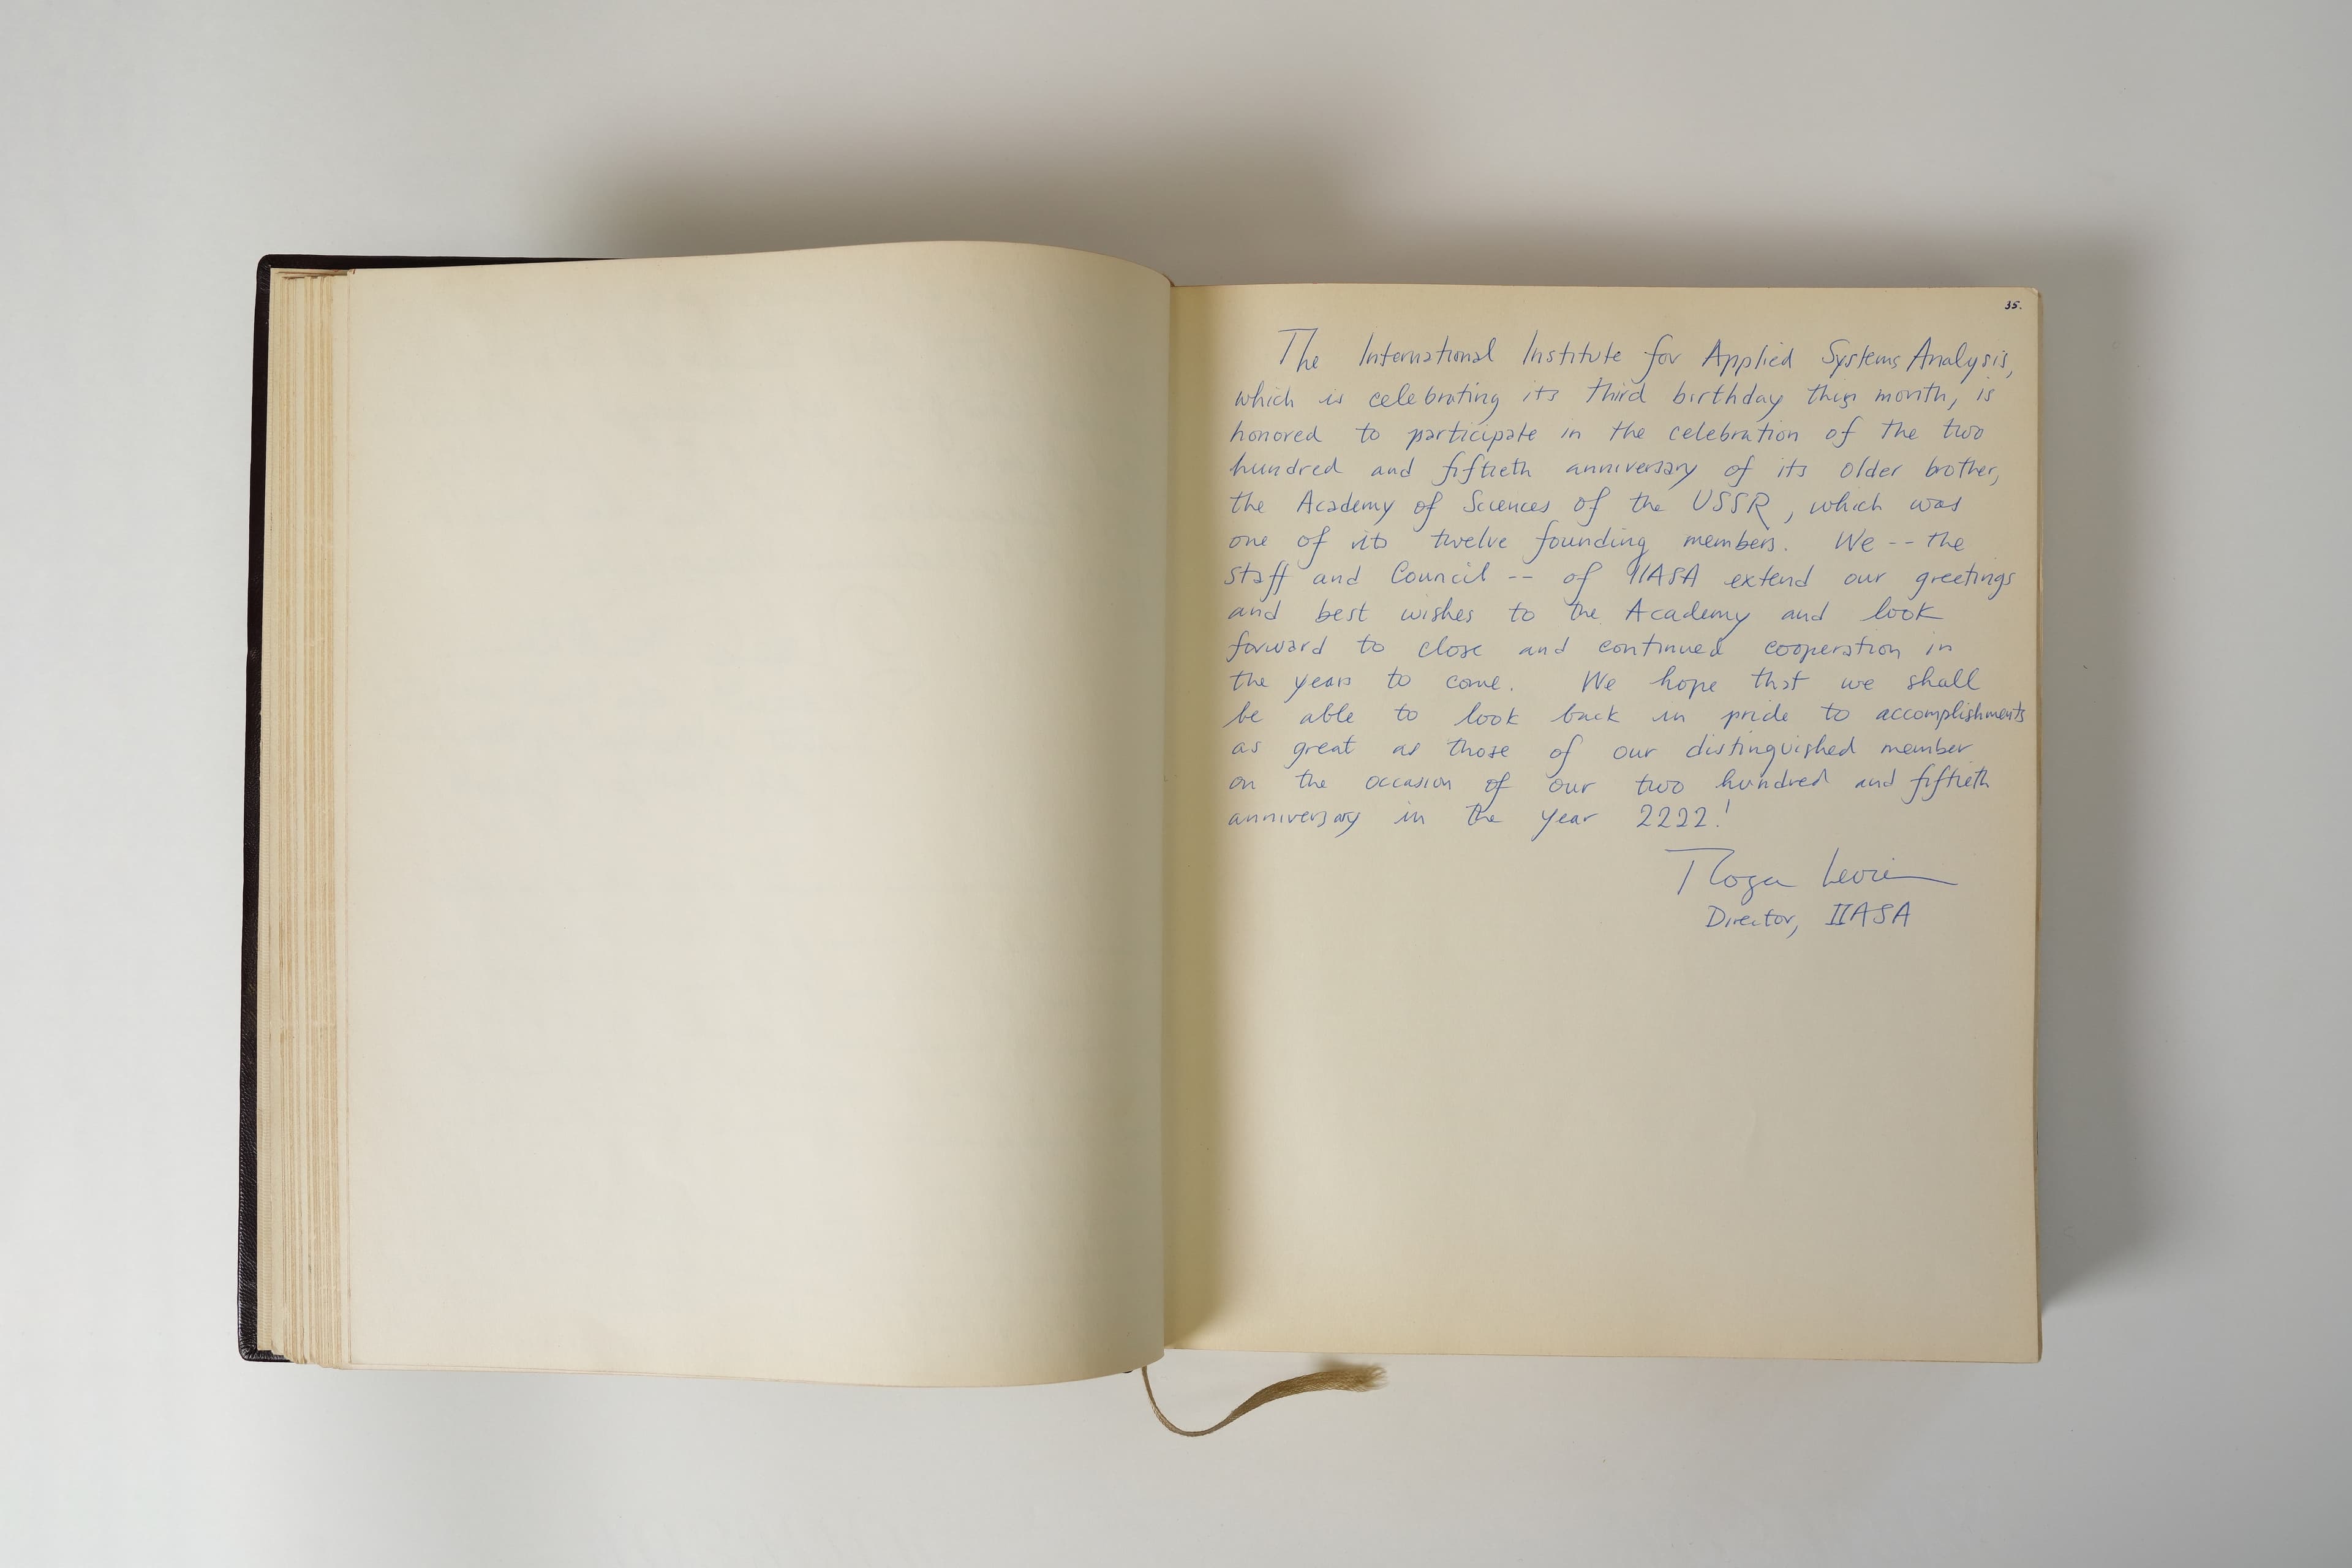 35.
The International Institute for Applied Systems Analysis,
which is celebrating its third birthday this month, is
honored to participate in the celebration of the two
hundred and fiftieth anniversary of its older brother,
the Academy of Sciences of the USSR, which was
one of its twelve founding members. We -- the
staff and Council -- of IIASA extend our greetings
and best wishes to the Academy and look
forward to close and continued cooperation in
the years to come. We hope that we shall
be able to look back in pride to accomplishments
as great as those of our distinguished member
on the occasion of our two hundred and fiftieth
anniversary in the year 2222!
Roger Levien
Director, IIASA